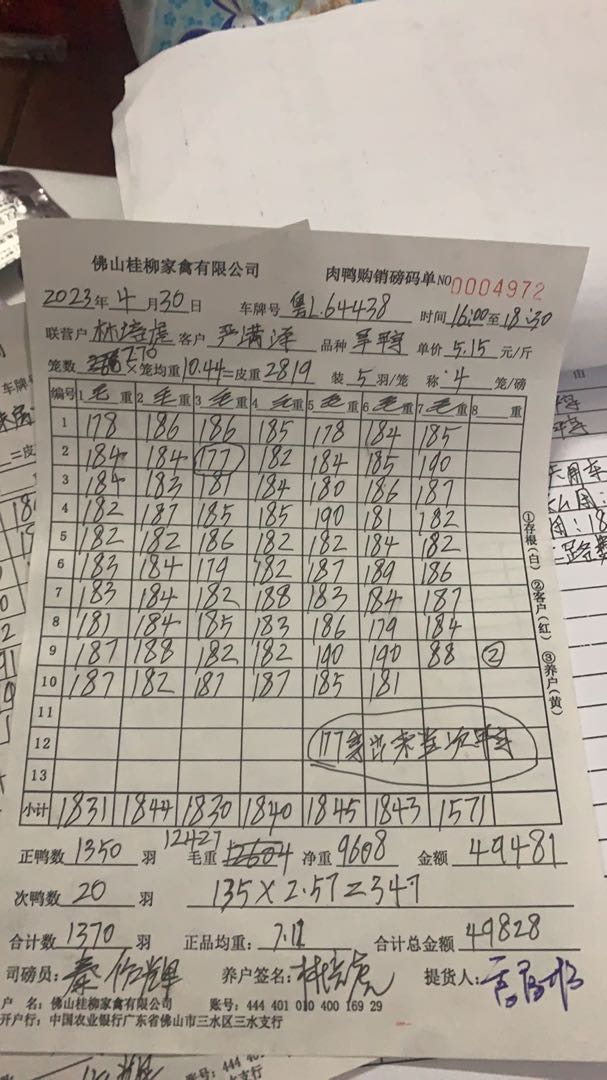 佛山桂柳家禽有限公司 肉鸭购销磅码单 NO 0004972
2023年4月30日 车牌号 粤L.64438 时间16:00至18:30
联营户 客户 严满泽 品种 单价 5.15 元/斤
笼数 270 ×笼均重10.44=皮重2819 装 5 羽/笼 称·4 笼/磅
编号 1 毛 重 2 毛 重 3 毛 重 4 毛 重 5 毛 重 6 毛 重 7 毛 重 8 重
1 178 186 186 185 178 184 185
2 184 184 177 182 184 185 190
3 184 183 181 184 180 186 187
4 182 187 185 185 190 181 182
5 182 182 186 182 182 184 182
6 183 184 179 182 187 189 186
7 183 184 182 188 183 184 187
8 181 184 185 183 186 179 184
9 187 188 182 182 190 190 88 ②
10 187 182 187 187 185 181
11
12 177
13
小计 1831 1844 1830 1840 1845 1843 1571
正鸭数 1350 羽 毛重 12427 净重 9608 金额 49481
次鸭数 20 羽 135×2.57=347
合计数 1370 羽 正品均重: 7.12 合计总金额 49828
司磅员: 养户签名: 提货人:
户 名: 佛山桂柳家禽有限公司 账号: 444 401 010 400 169 29
开户行: 中国农业银行广东省佛山市三水区三水支行
①存根(白) ②客户(红) ③养户(黄)